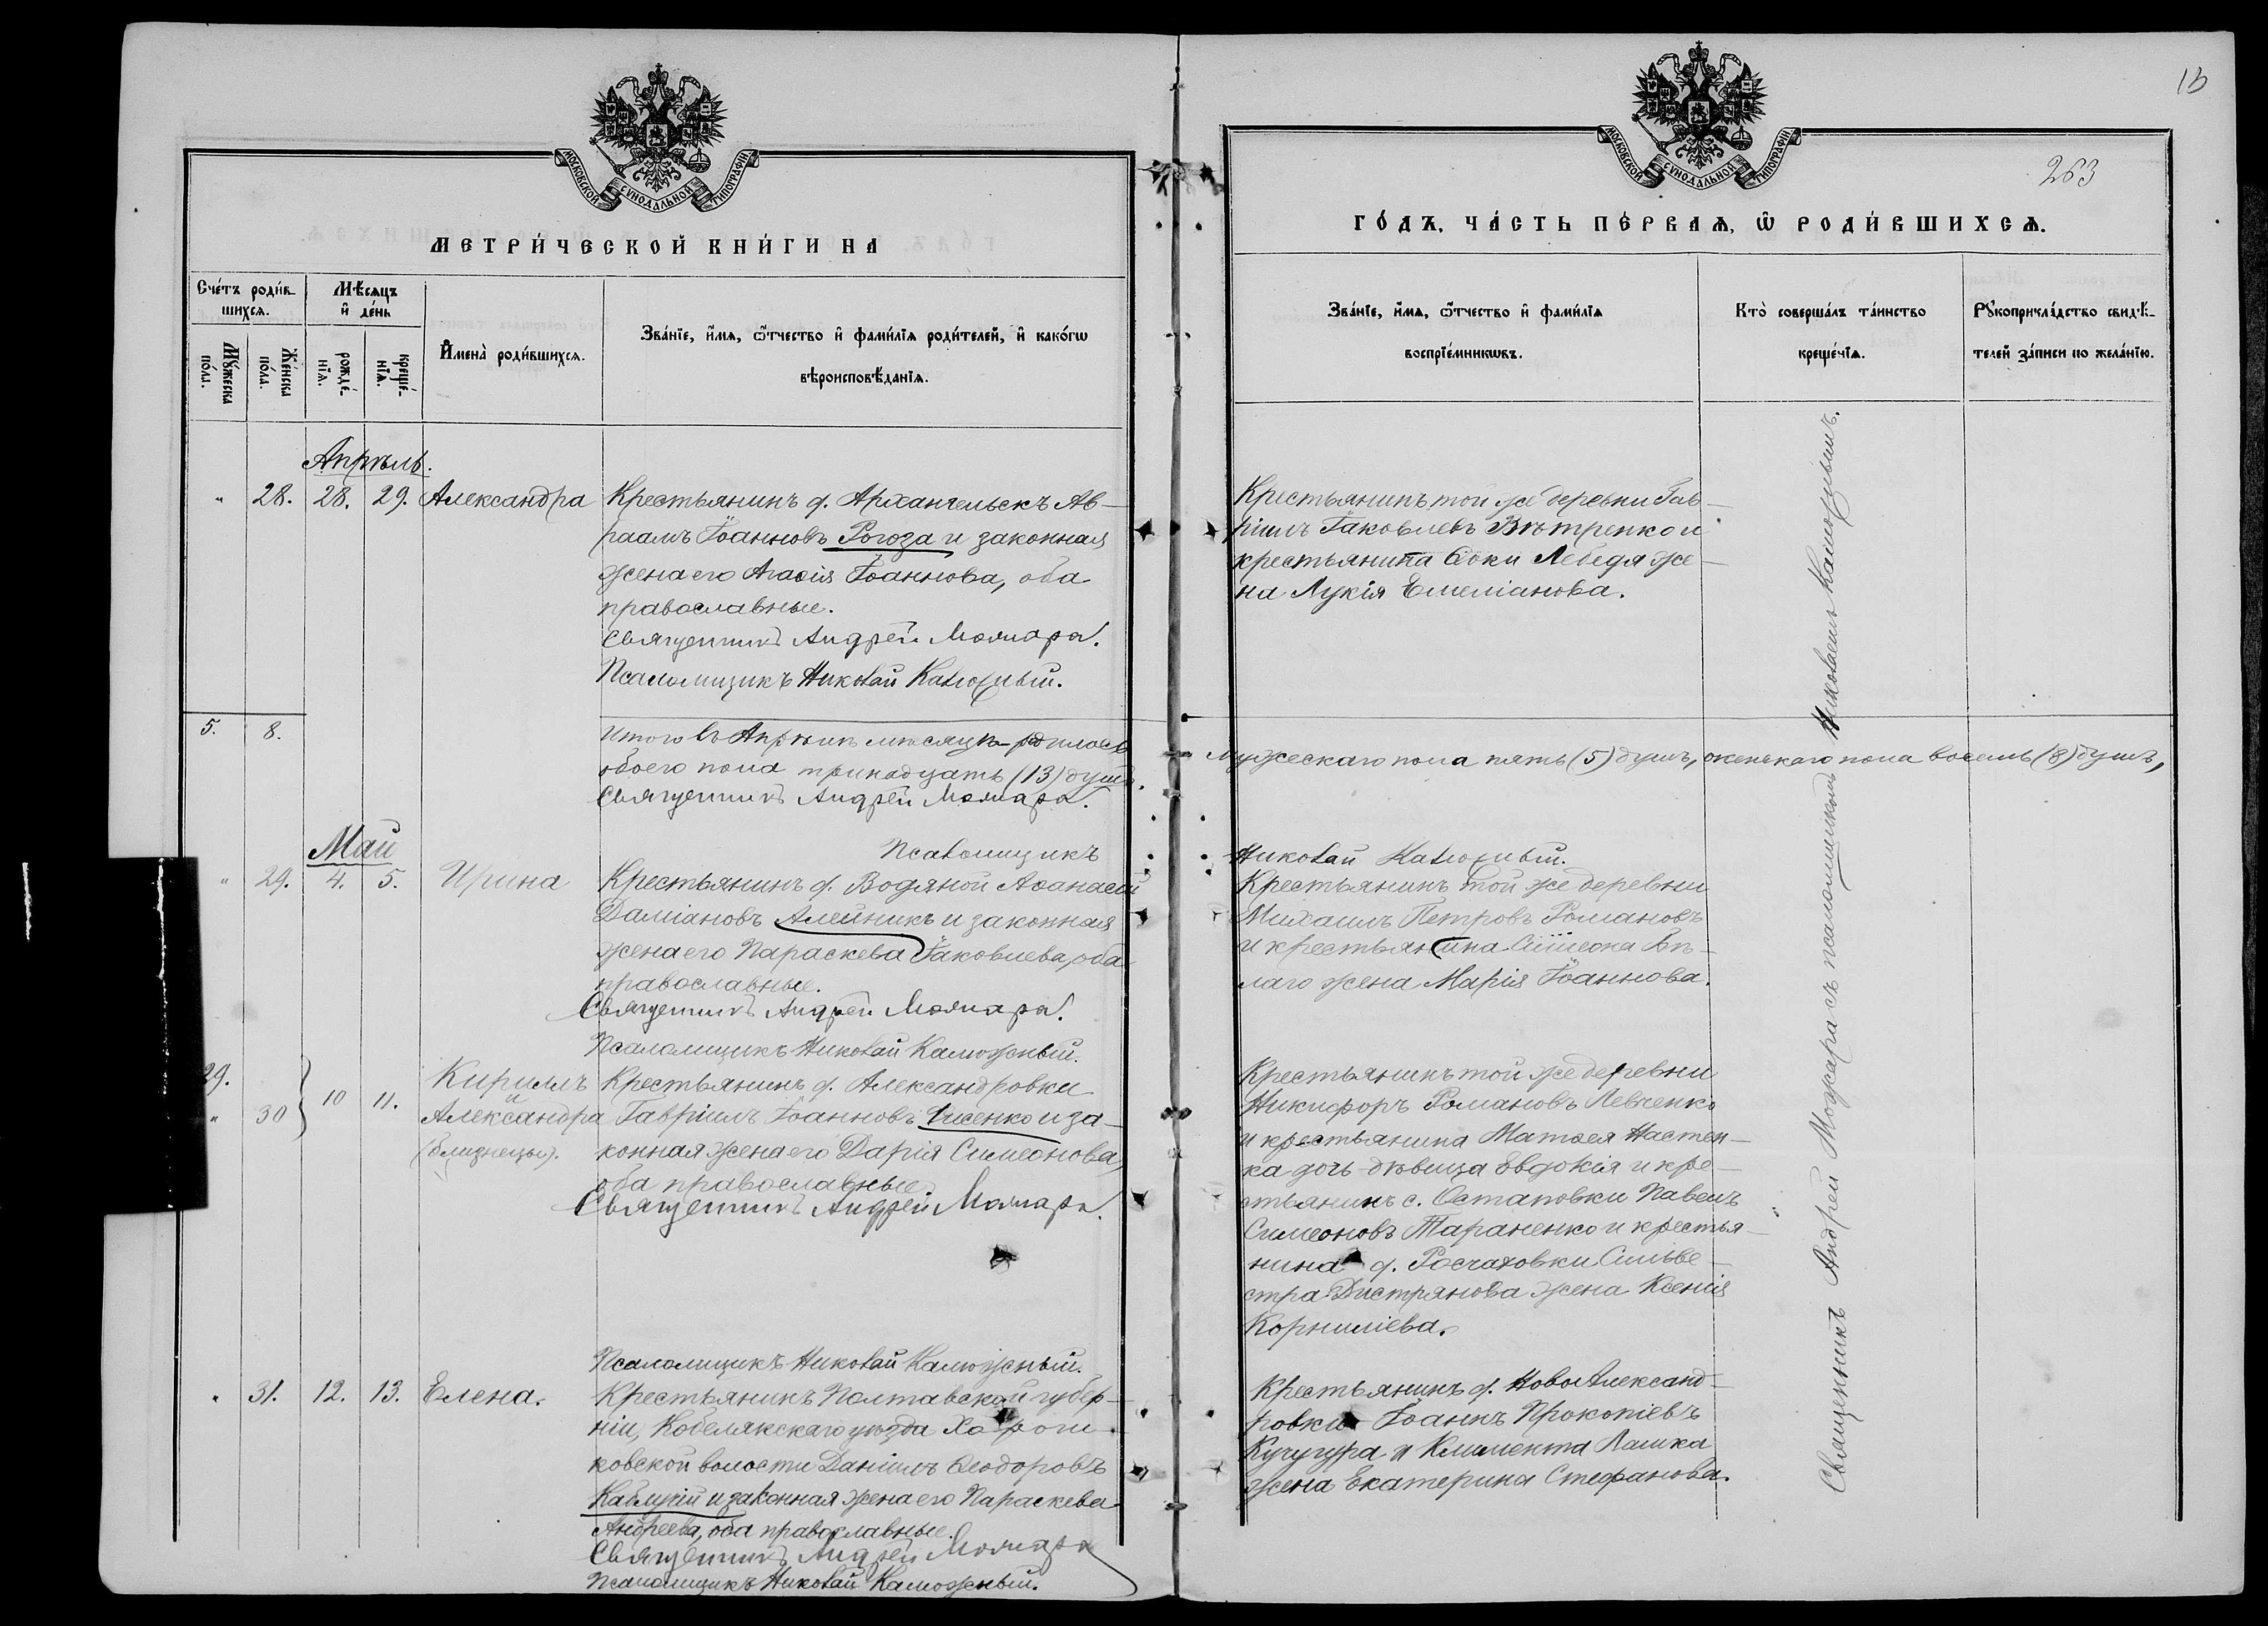 МОСКОВСКОЙ СѴНОДАЛЬНОЙ ТИПОГРАФІИ
МЕТРИ́ЧЕСКОЙ КНИ́ГИ НА
Сче́тъ роди́в-
шихсѧ.
Мѣ́сѧцъ
и҆ де́нь
Мꙋ́жеска
по́ла.
Же́нска
по́ла.
рожде́-
нїѧ.
креще́-
нїѧ.
И҆мена̀ роди́вшихсѧ.
Зва́нїе, и҆́мѧ, ѻ҆́тчество и҆ фами́лїѧ роди́телей, и҆ како́гѡ
вѣроисповѣ́данїѧ.
Апрѣль.
" 28. 28. 29. Александра
Крестьянинъ д. Архангельскъ Ав-
раамъ Іоанновъ Рогоза и законная
жена его Агаѳія Іоаннова, оба
православные.
Священникъ Андрей Можара.
Псаломщикъ Николай Калюжный.
5. 8.
Итого въ Апрѣлѣ мѣсяцѣ родилось
обоего пола тринадцать (13) душъ.
Священникъ Андрей Можара.
Псаломщикъ
Май
" 29. 4. 5. Ирина
Крестьянинъ д. Водяной Аѳанасій
Даміановъ Алейникъ и законная
жена его Параскева Іаковлева, оба
православные.
Священникъ Андрей Можара.
Псаломщикъ Николай Калюжный.
29.
" 30 10 11.
Кириллъ
и
Александра
(близнецы).
Крестьянинъ д. Александровки
Гавріилъ Іоанновъ Лисенко и за-
конная жена его Дарія Симеонова,
оба православные
Священникъ Андрей Можара.
Псаломщикъ Николай Калюжный.
" 31. 12. 13. Елена.
Крестьянинъ Полтавской губер-
ніи, Кобелякскаго уѣзда
ковской волости Даніилъ Ѳеодоровъ
Каблучій и законная жена его Параскева
Андреева, оба православные.
Священникъ Андрей Можара
Псаломщикъ Николай Калюжный.
13
263
МОСКОВСКОЙ СѴНОДАЛЬНОЙ ТИПОГРАФІИ
ГО́ДЪ, ЧА́СТЬ ПЕ́РВАѦ, Ѡ҆ РОДИ́ВШИХСѦ.
Зва́нїе, и҆́мѧ, ѻ҆́тчество и҆ фами́лїѧ
воспрїе́мникѡвъ.
Кто̀ соверша́лъ та́инство
креще́нїѧ.
Рꙋкоприкла́дство свидѣ́-
телей за́писи по жела́нїю.
Крестьянинъ той же деревни Гав-
ріилъ Іаковлевъ Вѣтренко и
крестьянина Ѳоки Лебедя же-
на Лукія Емеліанова.
мужескаго пола пять (5) душъ, женскаго пола восемь (8) душъ,
Николай Калюжный.
Крестьянинъ той же деревни
Михаилъ Петровъ Романовъ
и крестьянина Симеона Бѣ-
лаго жена Марія Іоаннова.
Крестьянинъ той же деревни
Никифоръ Романовъ Левченко
и крестьянина Матѳея Настен-
ка дочь дѣвица Евдокія и кре-
стьянинъ с. Остаповки Павелъ
Симеоновъ Тараненко и крестья-
нина д. Сильве-
стра Дистрянова жена Ксенія
Корниліева.
Крестьянинъ д. НовоАлександ-
ровки Іоаннъ Прокопіевъ
Кучугура и Климента Лашка
жена Екатерина Стефанова.
Священникъ Андрей Можара съ псаломщикомъ Николаемъ Калюжнымъ.